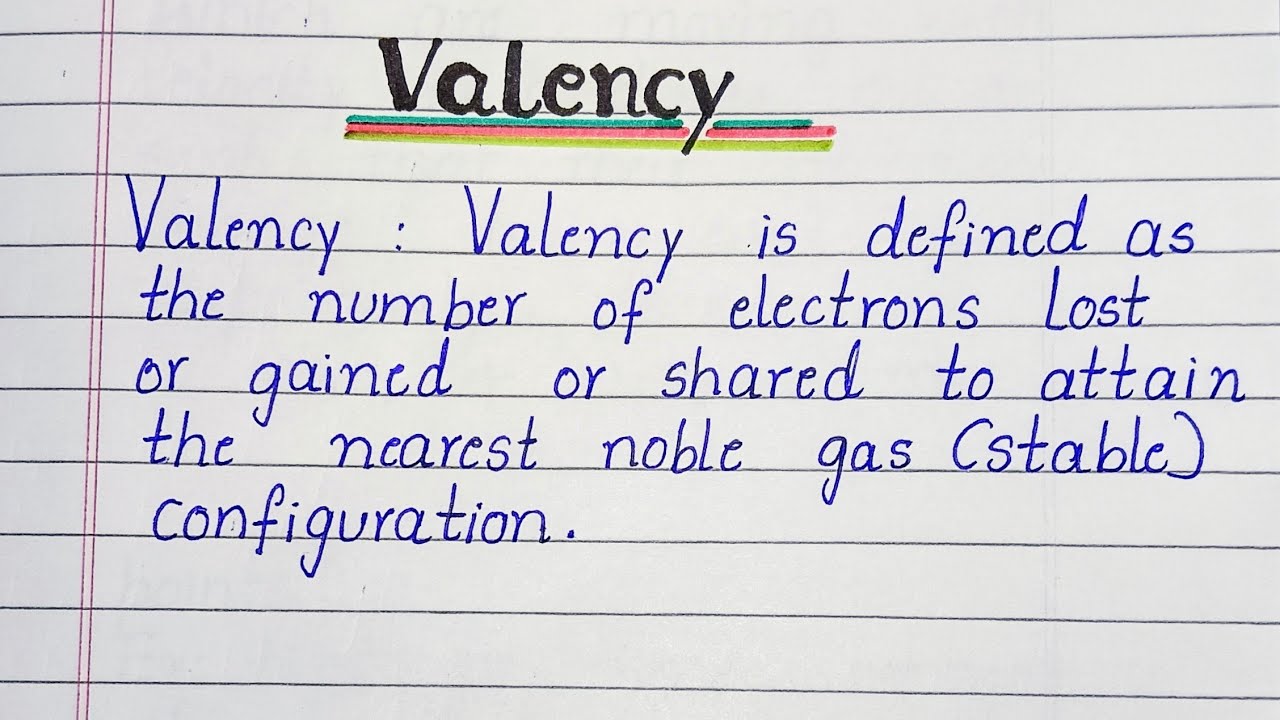 Valency
Valency : Valency is defined as
the number of electrons lost
or gained or shared to attain
the nearest noble gas (stable)
configuration.